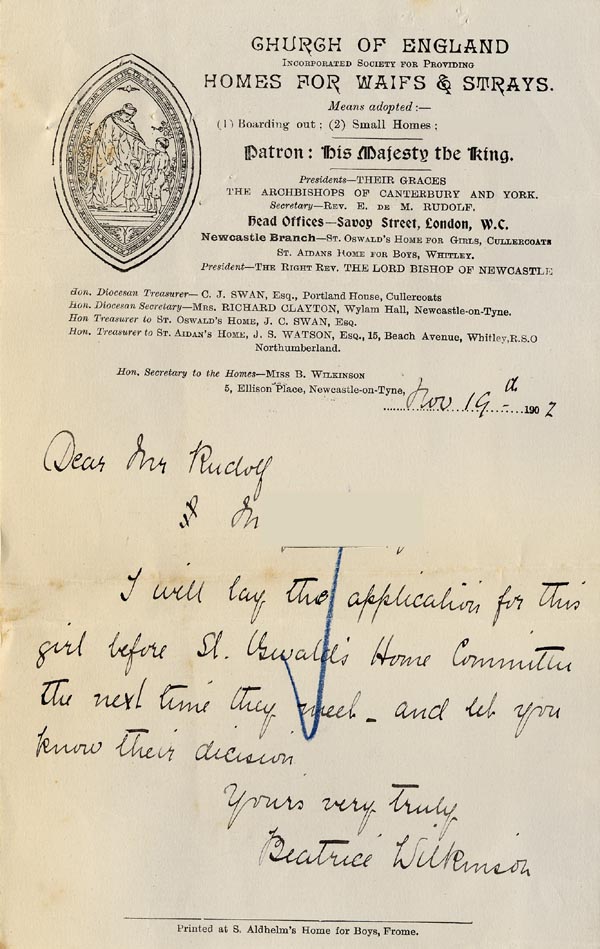 CHURCH OF ENGLAND
INCORPORATED SOCIETY FOR PROVIDING
HOMES FOR WAIFS & STRAYS.
Means adopted:—
(1) Boarding out; (2) Small Homes;
Patron: His Majesty the King.
Presidents—THEIR GRACES
THE ARCHBISHOPS OF CANTERBURY AND YORK.
Secretary—REV. E. DE M. RUDOLF.
Head Offices—Savoy Street, London, W.C.
Newcastle Branch—ST. OSWALD'S HOME FOR GIRLS, CULLERCOATS
ST. AIDANS HOME FOR BOYS, WHITLEY.
President—THE RIGHT REV. THE LORD BISHOP OF NEWCASTLE
Hon. Diocesan Treasurer—C. J. SWAN, Esq., Portland House, Cullercoats
Hon. Diocesan Secretary—MRS. RICHARD CLAYTON, Wylam Hall, Newcastle-on-Tyne.
Hon Treasurer to ST. OSWALD'S HOME, J. C. SWAN, ESQ.
Hon. Treasurer to ST. AIDAN'S HOME, J. S. WATSON, ESQ., 15, Beach Avenue, Whitley, R.S.O
Northumberland.
Hon. Secretary to the Homes—MISS B. WILKINSON
5, Ellison Place, Newcastle-on-Tyne, Nov 19th 1907
Dear Mr Rudolf
I will lay the application for this
girl before St. Oswald's Home Committee
the next time they meet - and let you
know their decision
Yours very truly
Beatrice Wilkinson
Printed at S. Aldhelm's Home for Boys, Frome.